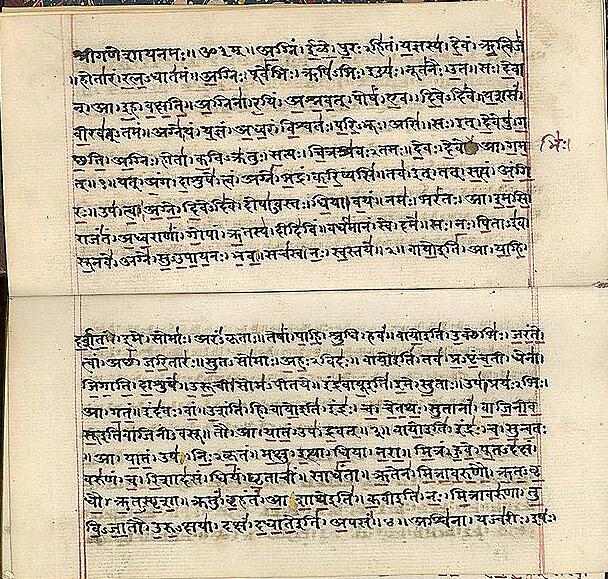 श्रीगणेशायनमः॥ॐ३म्॥ अग्निं। ईळे। पुरःऽहितं। यज्ञस्य। देवं। ऋत्विजं
॥होतारं। रत्नऽधातमं॥ अग्निः। पूर्वेभिः। ऋषिऽभिः। ईड्यः। नूतनैः। उत। सः। देवा
न्। आ। इह। वक्षति॥ अग्निना। रयिं। अश्नवत्। पोषं। एव। दिवेऽदिवे। यशसं।
वीरवत्ऽतमं॥ अग्ने। यं। यज्ञं। अध्वरं। विश्वतः। परिऽभूः। असि। सः। इत्। देवेषु। ग
च्छति॥ अग्निः। होता। कविऽक्रतुः। सत्यः। चित्रश्रवःऽतमः। देवः। देवे आ। गम
भिः।
त्॥१॥ यत्। अंग। दाशुषे। त्वं। अग्ने। भद्रं। करिष्यसि। तव। इत्। तत्। सत्यं। अंगि
रः॥ उप। त्वा। अग्ने। दिवेऽदिवे। दोषाऽवस्तः। धिया। वयं। नमः। भरंतः। आ। इमसि
राजंतं। अध्वराणां। गोपां। ऋतस्य। दीदिविं। वर्धमानं। स्वे। दमे॥ सः। नः। पिताऽइव।
सूनवे। अग्ने। सुऽउपायनः। भव॥ सचस्व। नः। स्वस्तये॥२॥ वायोइति। आ। याहि।
दर्शत। इमे। सोमाः। अरंऽकृताः॥ तेषां। पाहि। श्रुधि। हवं॥ वायोइति। उक्थेभिः। जरंते।
त्वां। अच्छ। जरितारः॥ सुतऽसोमाः। अहःऽविदः॥ वायोइति। तव। प्रऽपृंचती। धेना।
जिगाति। दाशुषे॥ उरूची। सोमऽपीतये॥ इंद्रवायूइति। इमे। सुताः॥ उप। प्रयःऽभिः।
आ। गतं॥ इंदवः। वां। उशंति। हि॥ वायोइति। इंद्रः। च। चेतथः। सुतानां। वाजिनीव
सूइतिवाजिनीऽवसू॥ तौ। आ। यातं। उप। द्रवत्॥३॥ वायोइति। इंद्रः। च। सुन्वतः
॥आ। यातं। उप। निःऽकृतं॥ मक्षु। इत्था। धिया। नरा॥ मित्रं। हुवे। पूतऽदक्षं।
वरुणं। च। रिशादसं॥ धियं। घृताचीं। साधंता॥ ऋतेन। मित्रावरुणौ। ऋतऽवृ
धौ। ऋतऽस्पृशा॥ क्रतुं। बृहंतं। आशाथेइति॥ कवीइति। नः। मित्रावरुणा। तु
विऽजातौ। उरुऽक्षया॥ दक्षं। दधातेइति। अपसं॥४॥ अश्विना। यज्वरीः। इषः।